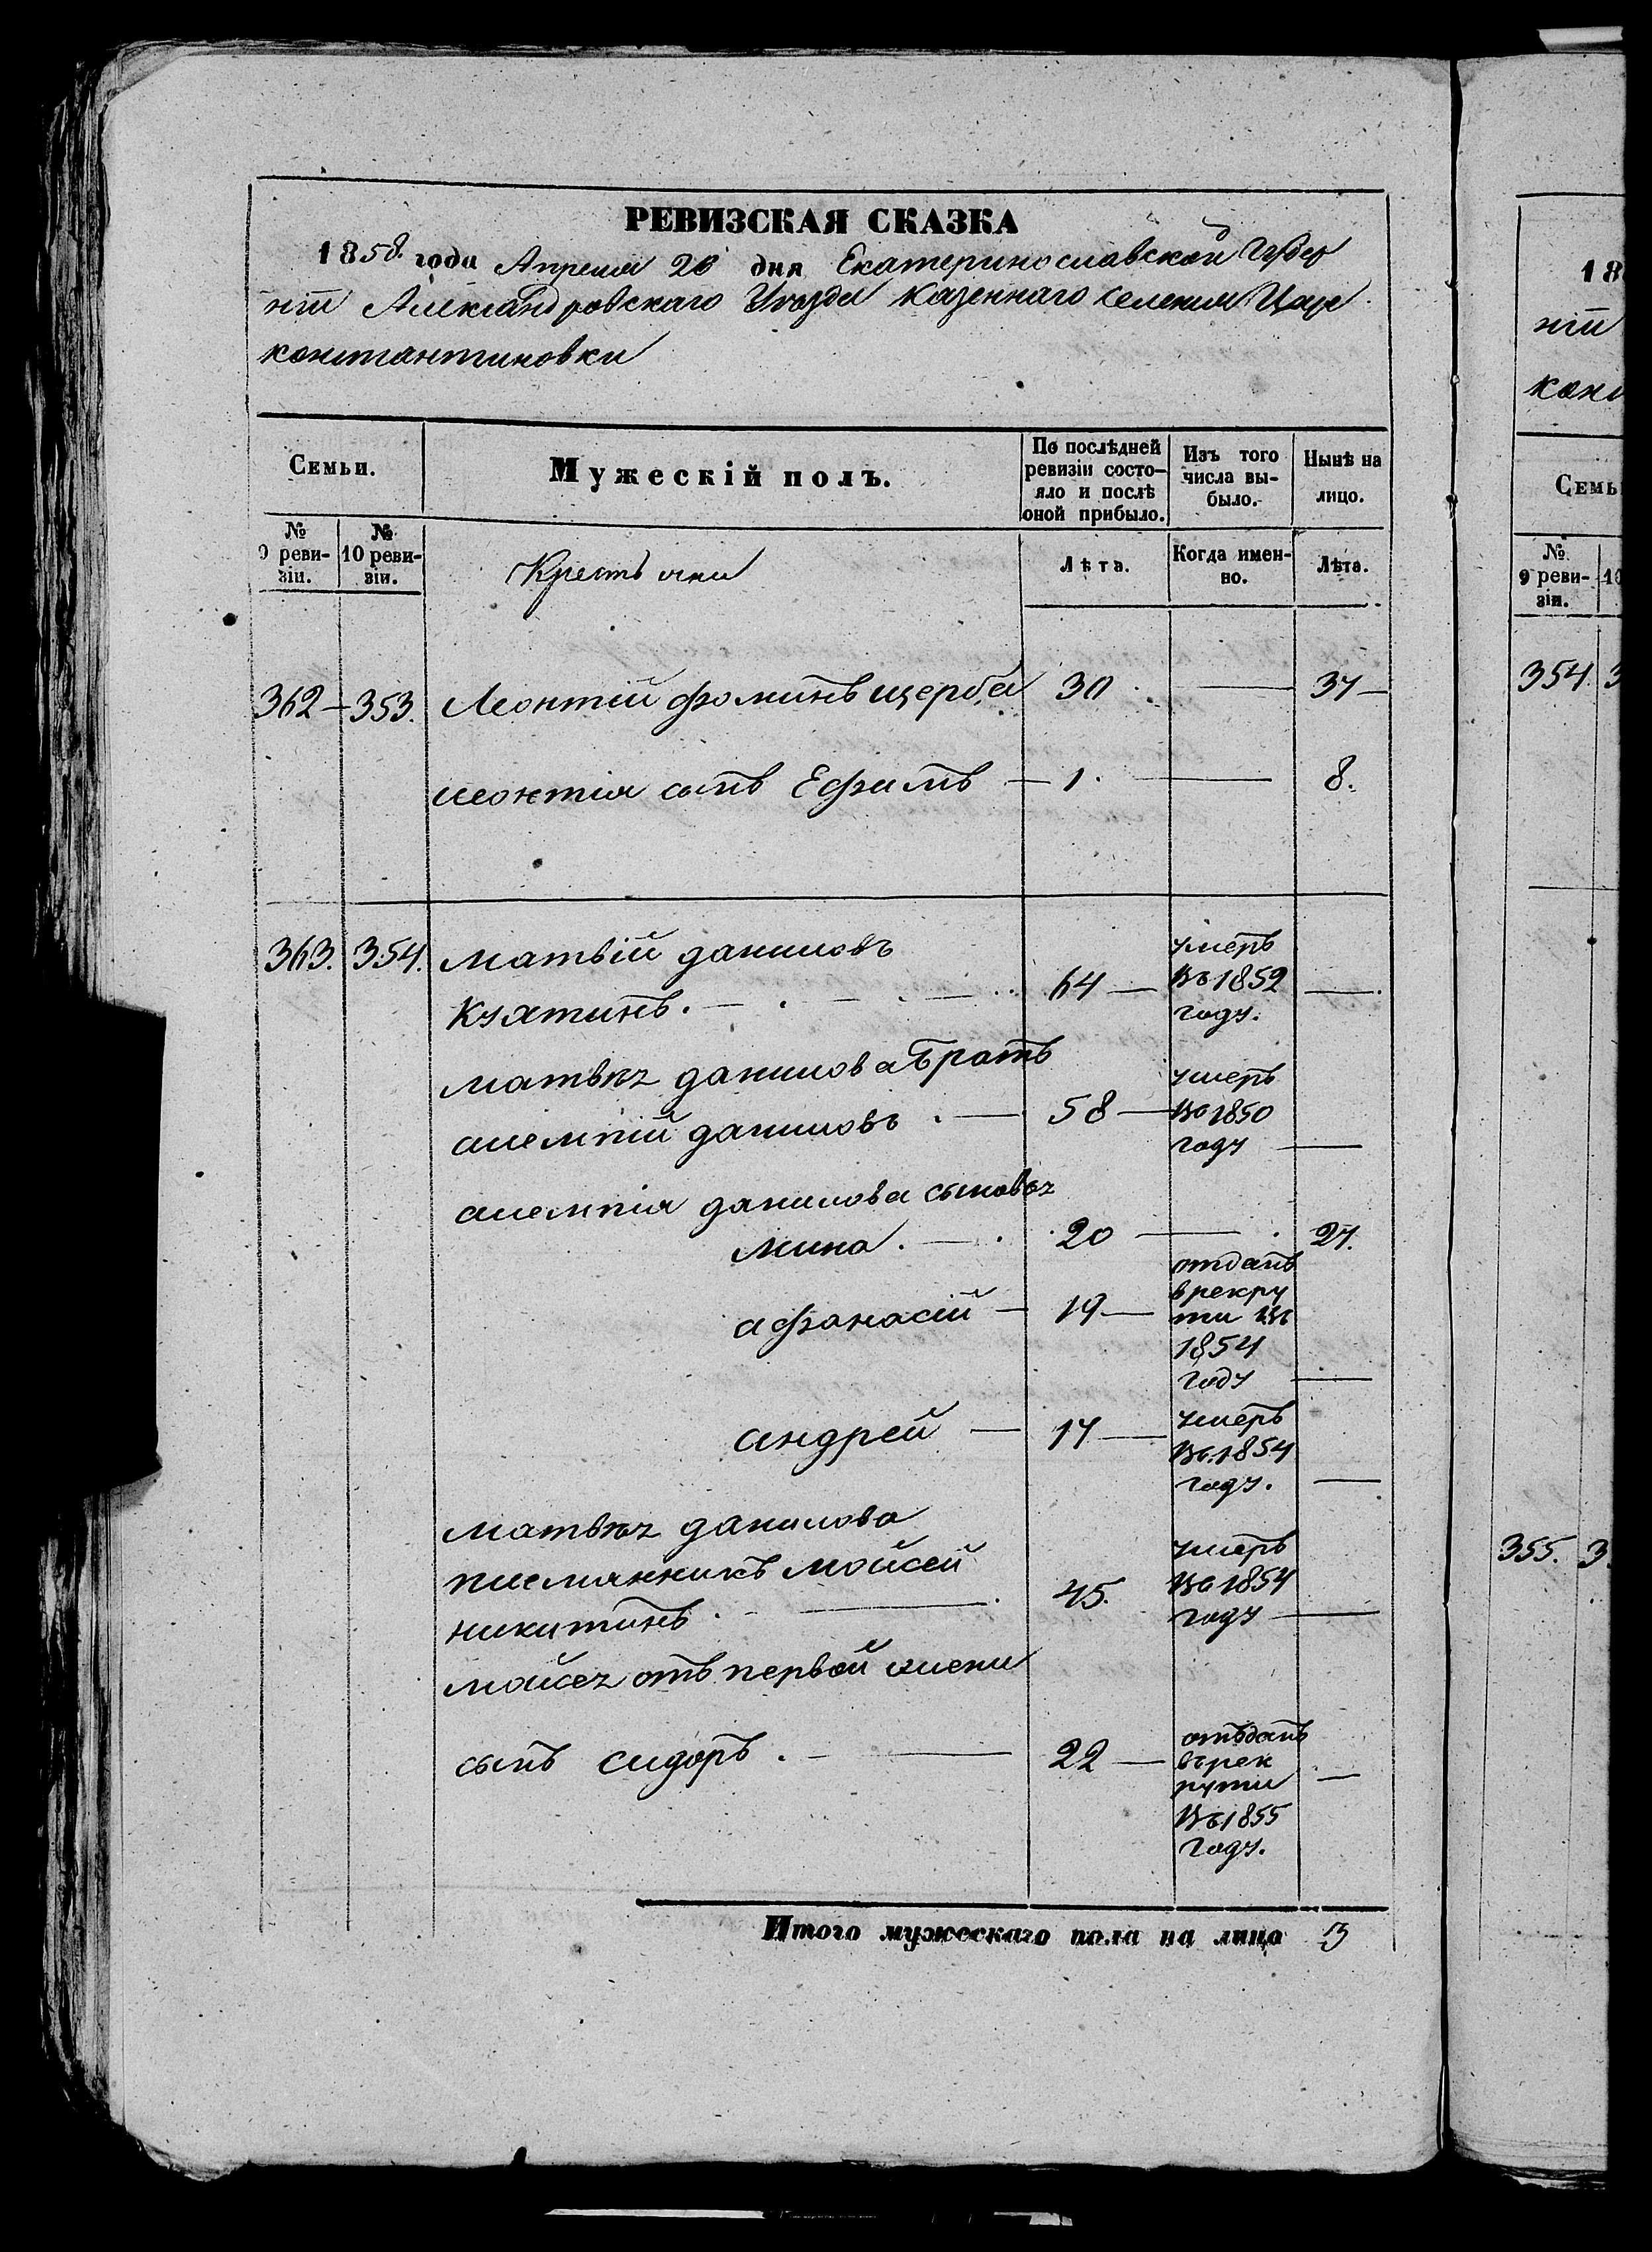 РЕВИЗСКАЯ СКАЗКА
1858 года Апреля 20 дня Екатеринославской Губер
нiи Александровскаго Уѣзда казеннаго селения Царе
константиновки
Семьи.
Мужескiй полъ.
По послѣдней ревизiи состо-
яло и послѣ
оной прибыло.
Изъ того
числа вы-
было.
Нынѣ на
лицо.
№
9 реви-
зiи.
№
10 реви-
зiи.
Крестьяни
Лѣта.
Когда имен-
но.
Лѣта.
362 — 353. Леонтiй фоминъ щерба 30 — 37 —
леонтiя сынъ Ефимъ — 1. — 8.
363. 354. матвiй даниловъ
64 — умеръ
въ 1852
году. —
матвѣя данилова братъ
алемпiй даниловъ. — 58 — умеръ
въ 1850
году —
алемпiя данилова сыновья
мина. — 20 — 27.
афанасiй — 19 — отданъ
врекру
ти въ
1854
году —
андрей — 17 — умеръ
въ 1854
году. —
матвѣя данилова
племянникъ мойсей
никитинъ. — 45. умеръ
въ 1854
году —
мойсея отъ первой жени
сынъ сидоръ. — 22 — отъданъ
върек
рути
въ 1855
году. —
Итого мужескаго пола на лицо 3
18
нiи
конс
Семь
№
9 реви-
зiи.
10
354. 3
355. 3